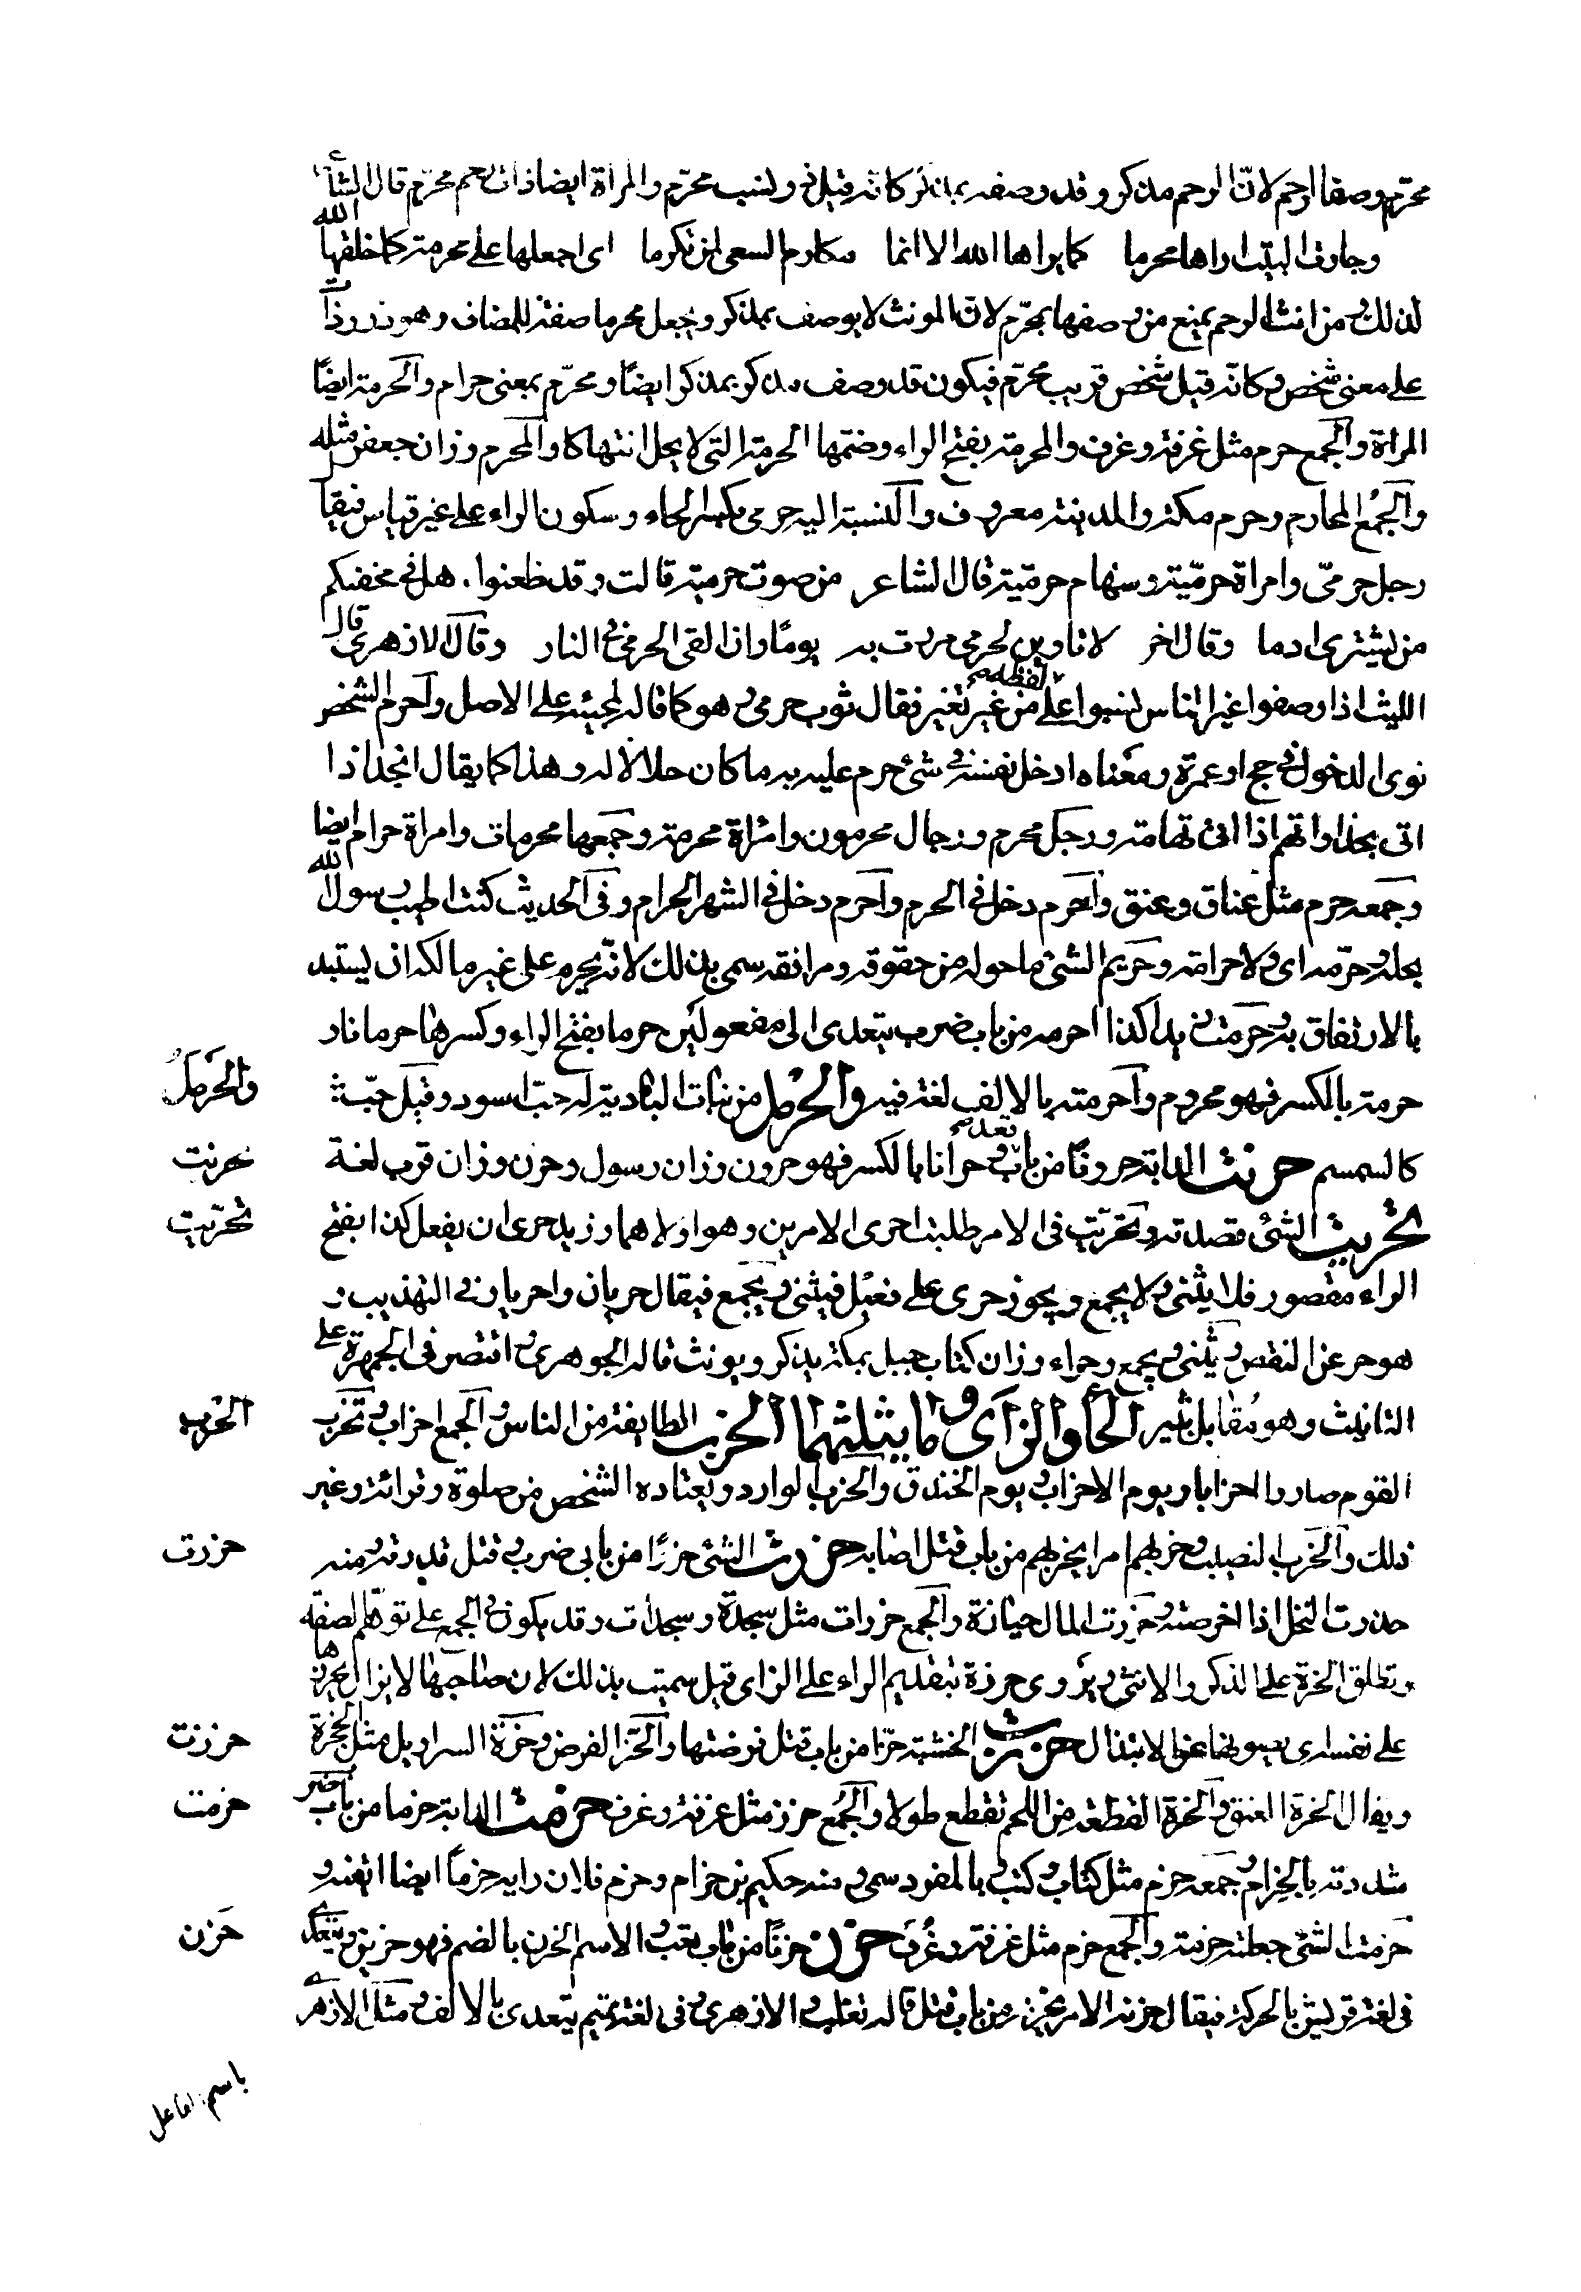 محرّم وصفا لرحم لانّ الرحم مذكر وقد وصفه بمذكر كانه قيل ذو نسب محرّم والمراة ايضا ذات رحم محرّم قال الشا
وجارة البيت اراها محرما كما براها الله الا انما مكارم السعى لمن تكرما اى اجعلها على محرمة كما خلقها الله
لذلك ومن انث الرحم يمنع من وصفها بمحرّم لانّ المونث لا يوصف بمذكر ويجعل محرما صفة للمضاف وهو ذو وذات
على معنى شخص وكانّه قيل شخص قريب محرّم فيكون قد وصف مذكر بمذكر ايضا ومحرّم بمعنى حرام والحرمة ايضا
المراة والجمع حرم مثل غرفة وغرف والمحرمة بفتح الراء وضمّها الحرمة التى لا يحل انتهاكها والمحرم وزان جعفر مثله
والجمع المحارم وحرم مكة والمدينة معروف والنسبة اليه حرمى بكسر الحاء وسكون الراء على غير قياس فيقال
رجل حرمىّ وامراة حرميّة وسهام حرميّة قال الشاعر من صوت حرمية قالت وقد ظعنوا . هل فى مخفيكم
من يشترى ادما وقال اخر لا تاوين لحرمى مررت به يومًا وان القى الحرمى فى النار وقال الازهرى قال
الليث اذا وصفوا غير الناس نسبوا على لفظه من غير تغيير فقال ثوب حرمى وهو كما قال لمجيئه على الاصل واحرم الشخص
نوى الدخول فى حج او عمرة ومعناه ادخل نفسه فى شئ حرم عليه به ما كان حلالا له وهذا كما يقال انجد اذا
اتى نجدا واتهم اذا اتى تهامة ورجل محرم ورجال محرمون وامراة محرمة وجمعها محرمات وامراة حرام ايضا
وجمعه حرم مثل عناق وعنق واحرم دخل فى الحرم واحرم دخل فى الشهر الحرام وفى الحديث كنت اطيب رسول الله
لحله وحرمه اى ولاحرامه وحريم الشئ ما حوله من حقوقه ومرافقه سمى بذلك لانّه يحرم على غير مالكه ان يستبد
بالارتفاق به وحرمت زيدا كذا احرمه من باب ضرب يتعدى الى مفعولين حرما بفتح الراء وكسرها حرمانا و
حرمة بالكسر فهو محروم واحرمته بالالف لغة فيه والحرمل من نبات البادية له حبّ اسود وقيل حبّه
والحرمل
كالسمسم حرنت الدابة حرونًا من باب قعد وحرانا بالكسر فهو حرون وزان رسول وحرن وزان قرب لغة
حرنت
تحريت الشئ قصدته وتحرّيت فى الامر طلبت احرى الامرين وهو اولاهما وزيد حرى ان يفعل كذا بفتح
تحرّيت
الراء مقصور فلا يثنى ولا يجمع ويجوز حرى على فعيل فيثنى ويجمع فيقال حريان واحرياء وفى التهذيب و
هو حر عن النقص ويثنى ويجمع وحراء وزان كتاب جبل بمكة يذكر ويونث قاله الجوهرى واقتصر فى الجمهرة على
التانيث وهو مقابل ثبير الحاء والزاى وما يثلثهما الحزب الطايفة من الناس والجمع احزاب وتحزب
الحزب
القوم صاروا احزابا ويوم الاحزاب يوم الخندق والحزب الورد يعتاده الشخص من صلوة وقرائة وغير
ذلك والحزب النصيب وحزبهم امر يحزبهم من باب قتل اصابه حزرت الشئ حزرًا من بابى ضرب وقتل قدرته ومنه
حزرت
حزرت النخل اذا خرصته وحزرت المال خيازة والجمع حزرات مثل سجدة وسجدات وقد يكون فى الجمع على توهّم الصفة
وتطلق الحزرة على الذكر والانثى ويروى حرزة بتقديم الراء على الزاى قيل سميت بذلك لان صاحبها لا يزال يحزرها
على نفسه اى يصونها عن الابتذال حززت الخشبة حزّا من باب قتل فرضتها والحزّ الفرض وحزّة السراويل مثل الحجزة
حززت
ويقال الحزة العنق والحزة القطعة من اللحم تقطع طولا والجمع حزز مثل غرفة وغرف حزمت الدابة حزما من باب ضرب
حزمت
شددته بالحزام وجمعه حزم مثل كتاب وكتب وبالمفرد سمى ومنه حكيم بن حزام وحزم فلان رايه حزمًا ايضا اتقنه و
حزمت الشئ جعلته حزمة والجمع حزم مثل غرفة وغُرف حزن حزنًا من باب تعب والاسم الحزن بالضم فهو حزين ويتعدى
حَزن
فى لغة قريش بالحركة فيقال حزننى الامر يحزننى من باب قتل قاله ثعلب والازهرى وفى لغة تميم يتعدى بالالف ومثّل الازهرى
باسم الفاعل